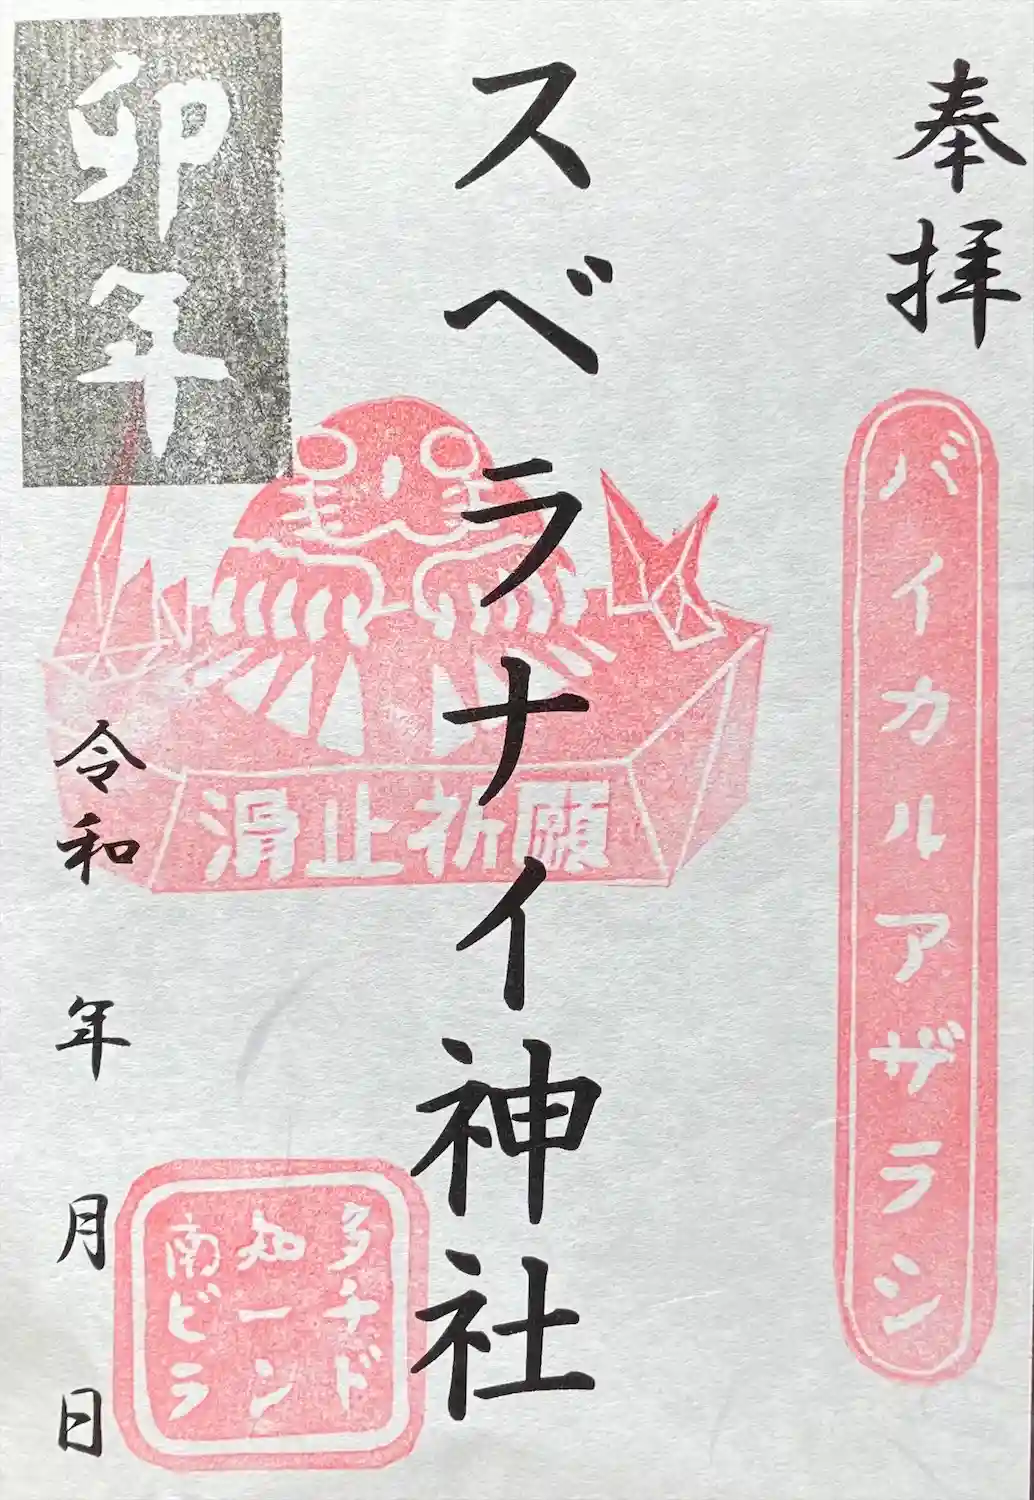 奉拝
バイカルアザラシ
スベラナイ神社
滑止祈願
卯年
令和 年 月 日
南知多
ビーチ
ランド